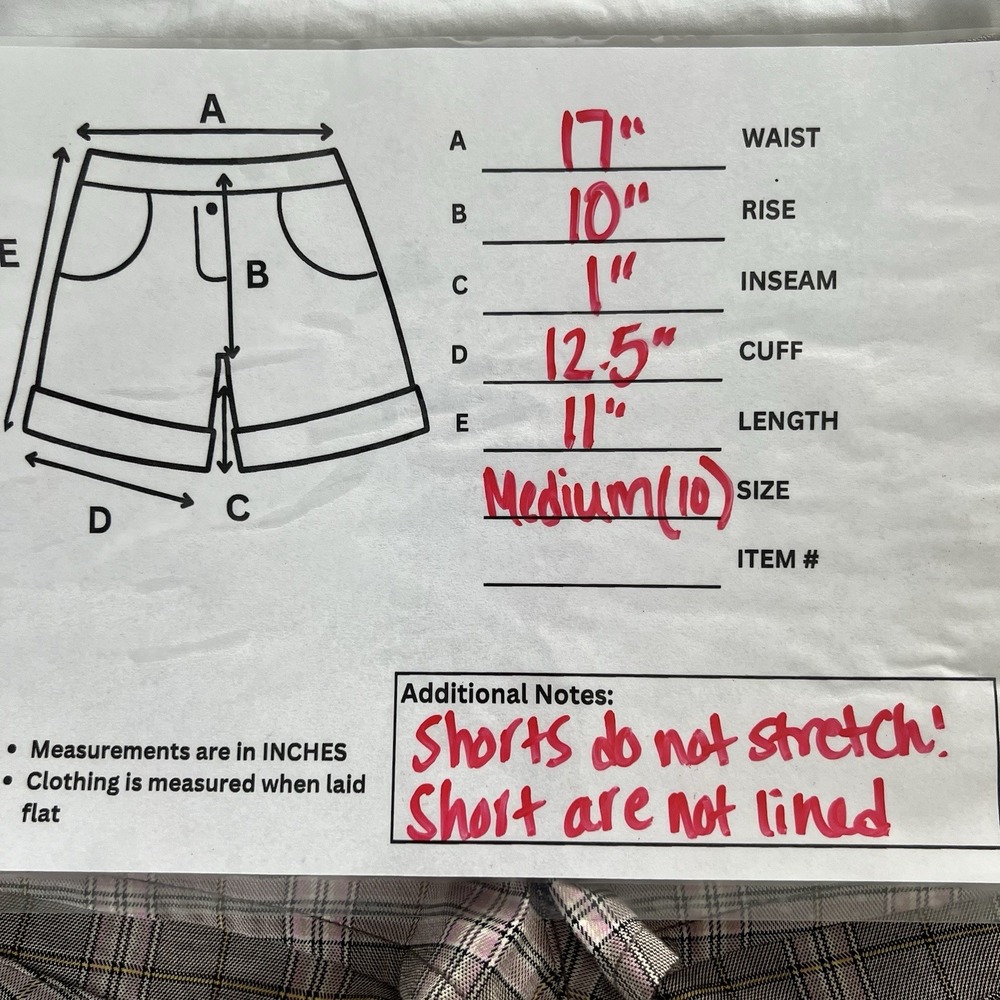 A
E
B
D
C
A 17" WAIST
B 10" RISE
C 1" INSEAM
D 12.5" CUFF
E 11" LENGTH
Medium(10) SIZE
ITEM #
Additional Notes:
Shorts do not stretch!
Short are not lined
• Measurements are in INCHES
• Clothing is measured when laid
flat